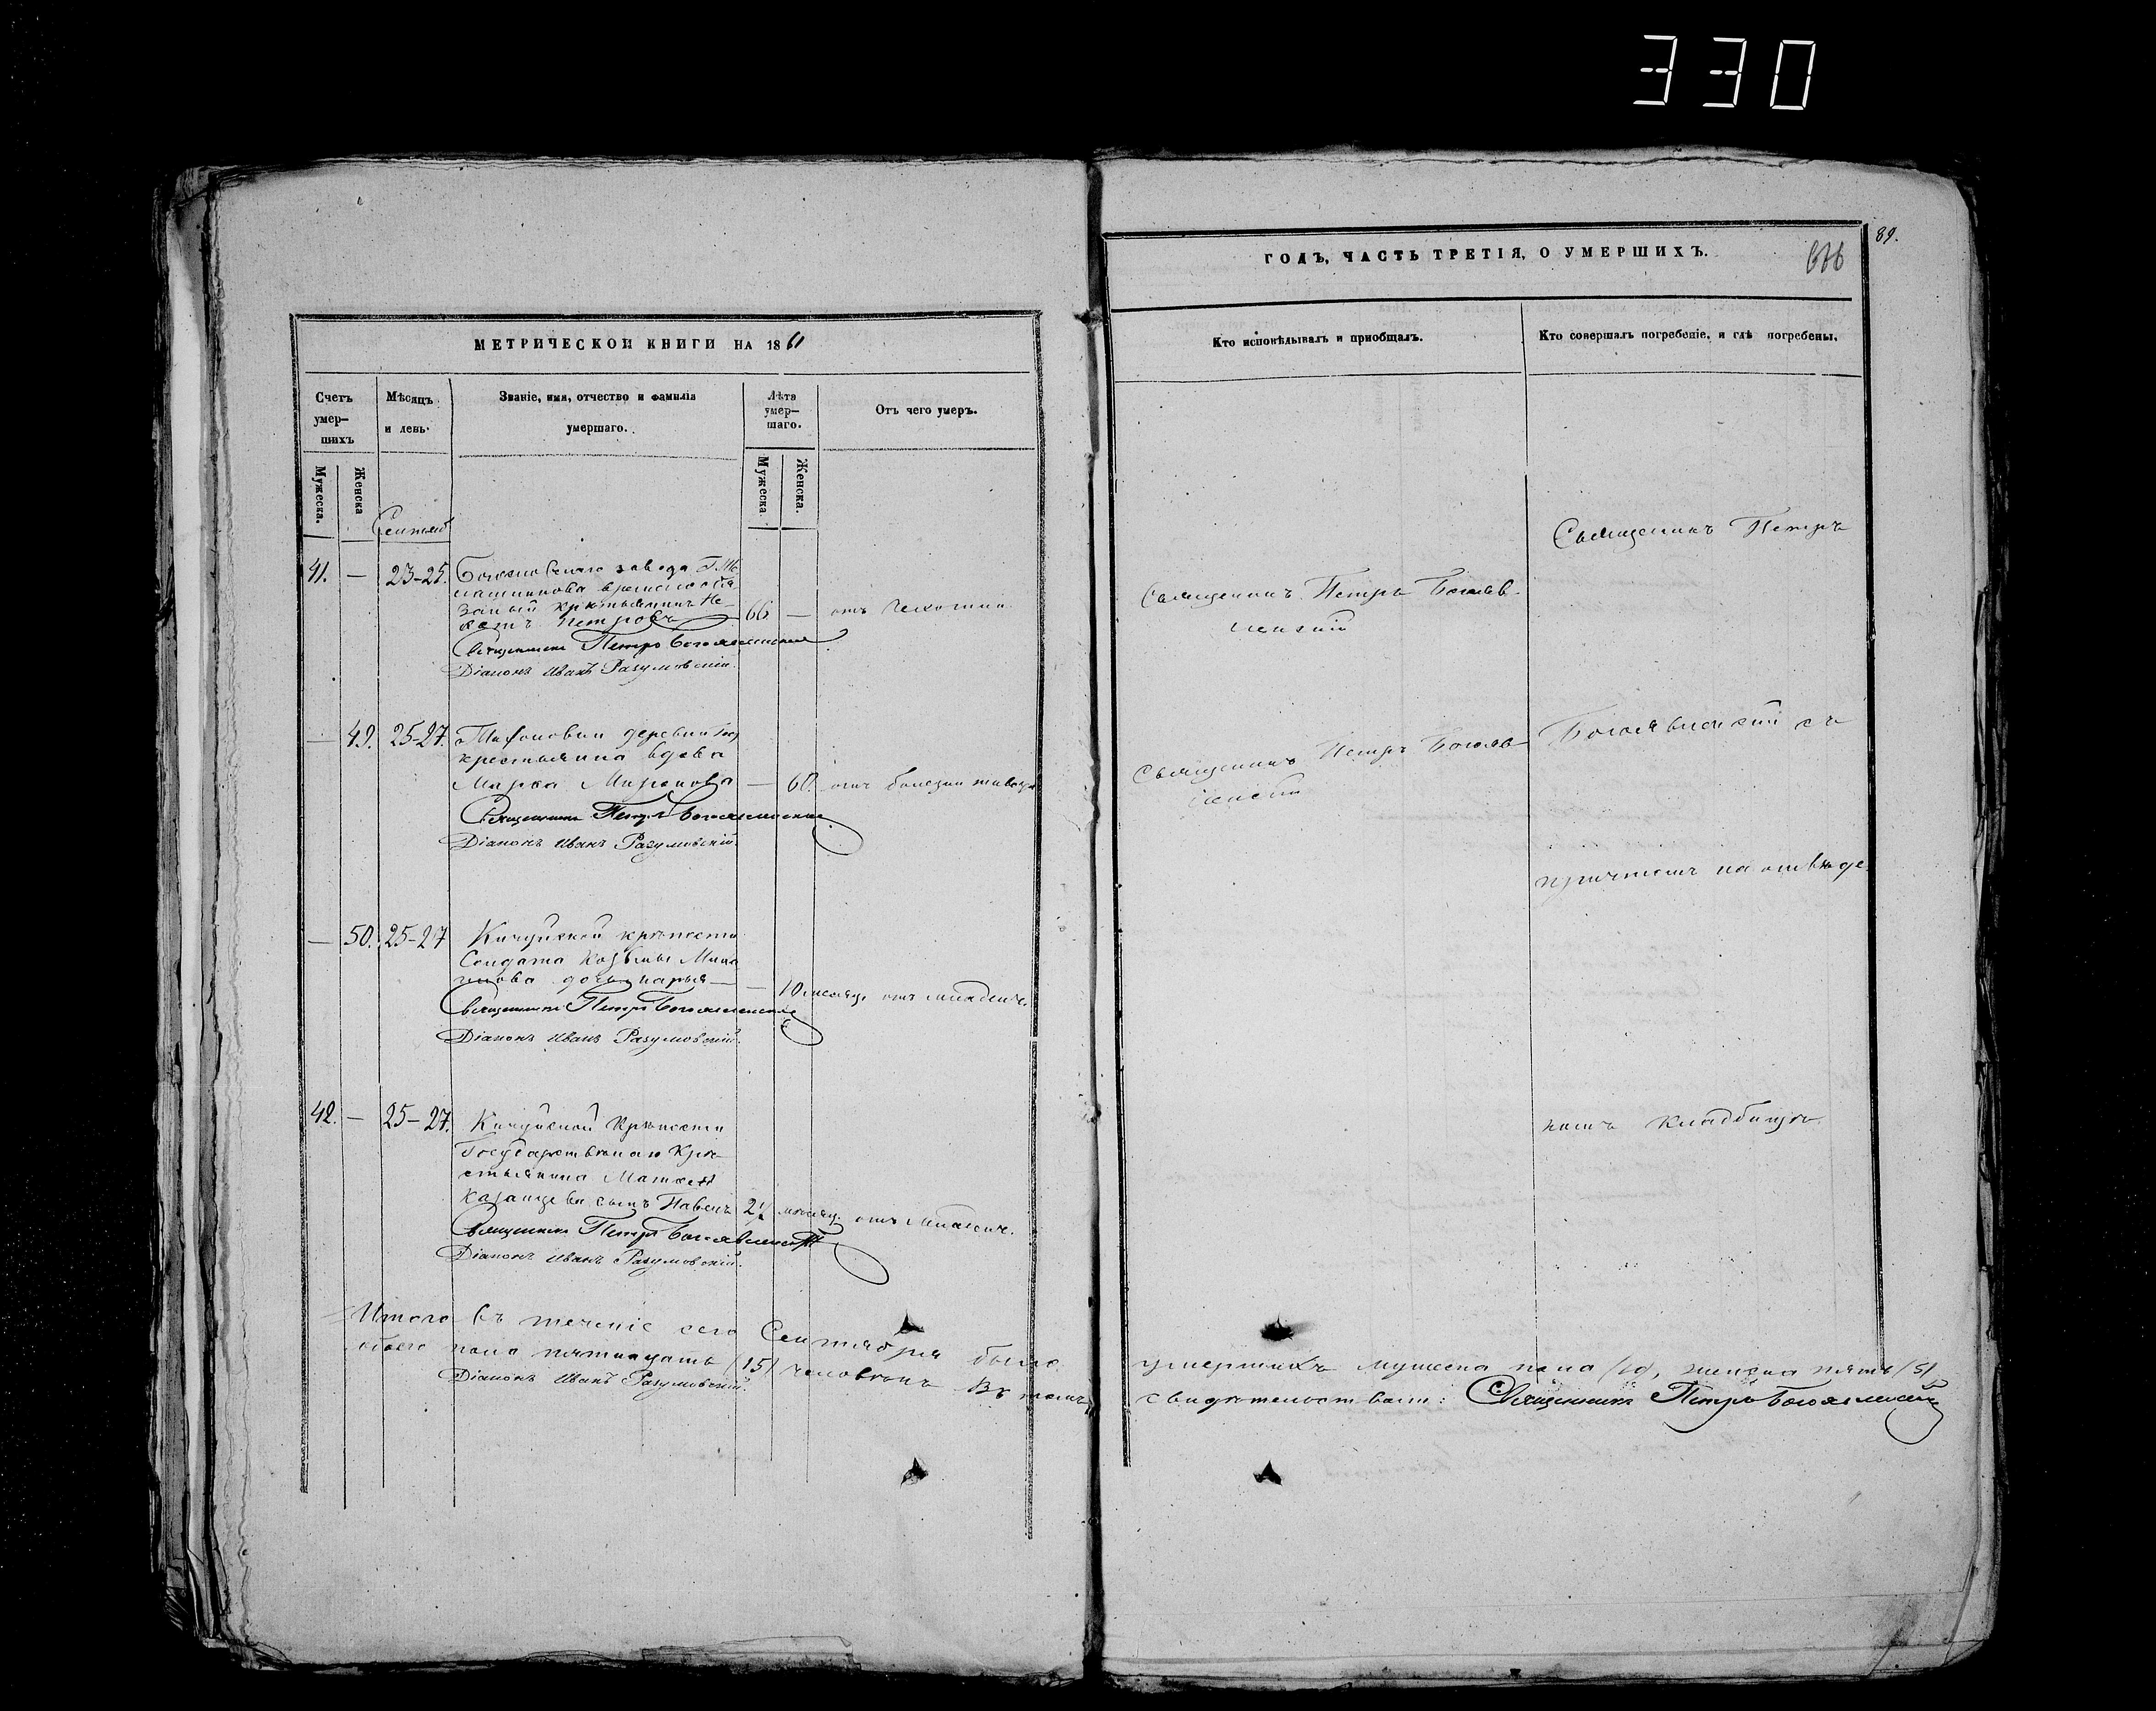 330
МЕТРИЧЕСКОЙ КНИГИ НА 1861
Счетъ умер-шихъ
Мѣсяцъ и день.
Званіе, имя, отчество и фамилія умершаго.
Лѣта умер-шаго.
Отъ чего умеръ.
Мужеска.
Женска
Мужеска.
Женска.
Сентяб
41. — 23-25.
завода
Петровъ — 66 —
отъ чахотки
Священникъ Петръ Богоявленскій
Діаконъ Иванъ Разумовскій.
— 49. 25-27.
деревни
крестьянина вдова
Марѳа Миронова — 60.
отъ болезни живота
Священникъ Петръ Богоявленскій
Діаконъ Иванъ Разумовскій.
— 50. 25-27
Кичуйской крѣпости
Солдата Козьмы
дочь Марья —
— 10 месяц. отъ младенч.
Священникъ Петръ Богоявленскій
Діаконъ Иванъ Разумовскій.
42. — 25-27.
Кичуйской Крѣпости
Государственнаго Кре-
стьянина Матвея
Казанцева сынъ Павелъ 2½ месяц. отъ младенч.
Священникъ Петръ Богоявленскій
Діаконъ Иванъ Разумовскій.
Итого въ теченіе сего Сентября было
обоего пола пятнадцать (15) человекъ Въ томъ
Діаконъ Иванъ Разумовскій.
89.
ГОДЪ, ЧАСТЬ ТРЕТІЯ, О УМЕРШИХЪ.
Кто исповѣдывалъ и пріобщалъ.
Кто совершалъ погребеніе, и гдѣ погребены.
Священникъ Петръ
Священникъ Петръ Богояв-
ленскій
Богоявленскій съ
Священникъ Петръ Богояв-
ленскій
причтомъ на отведе-
номъ кладбищѣ
умершихъ мужеска пола (10), женска пять (5)
свидѣтельствали: Священникъ Петръ Богоявленскій